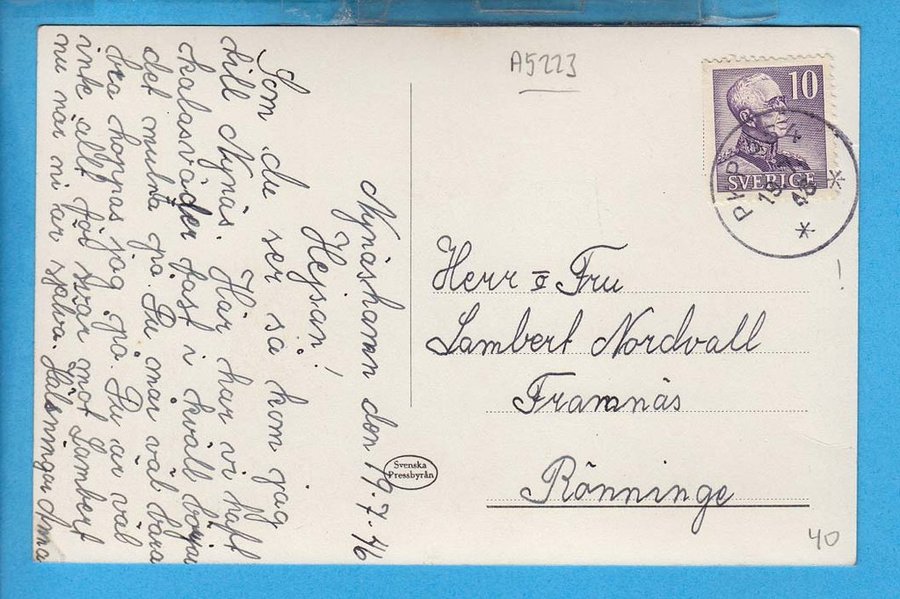 A5223
10
SVERIGE
PKP 4
19 7 46
Nynäshamn den 19.7.46
Hejsan!
Som du ser så kom jag
till Nynäs. Här har vi haft
kalasväder fast i kväll börjar
det mulna på. Du mår väl bara
bra hoppas jag på. Du är väl
inte allt för svår mot Lambert
nu när ni är själva. Hälsningar Anna
Herr o Fru
Lambert Nordvall
Framnäs
Rönninge
Svenska
Pressbyrån
40